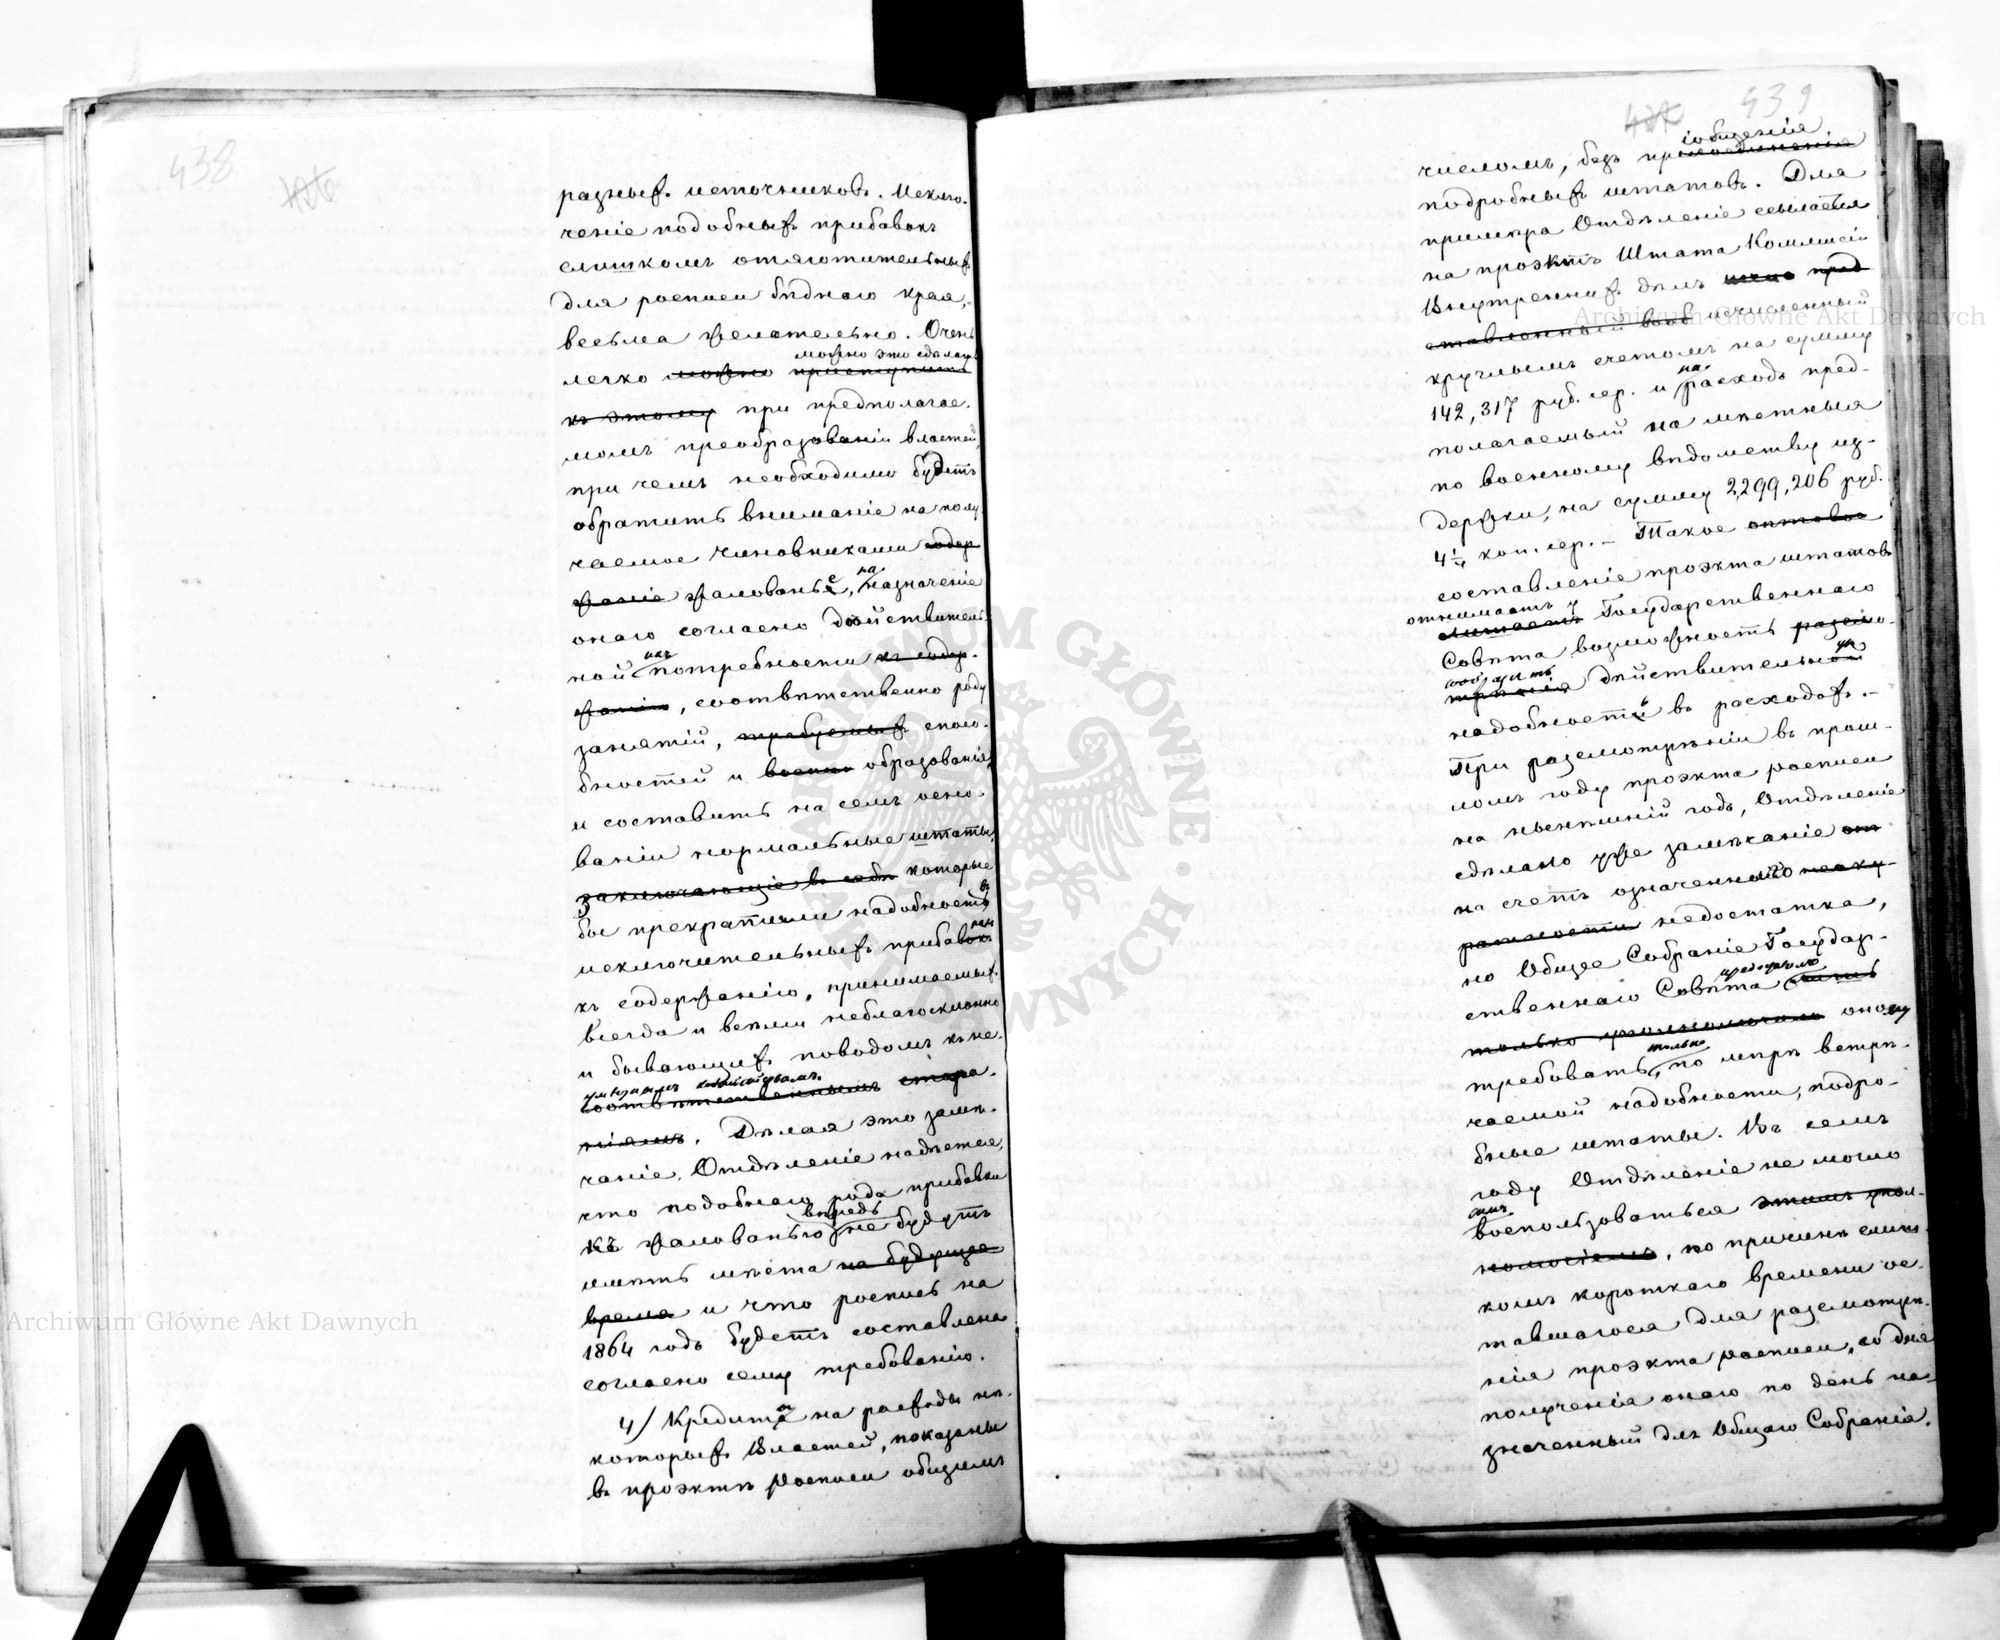 438
разныхъ источниковъ. Исклю-
ченіе подобныхъ прибавокъ
слишкомъ отяготительныхъ
для росписи бѣднаго края,
весьма желательно. Очень
можно это сдѣлать
легко можно приступить
къ этому при предполагае-
момъ преобразованіи властей,
при чемъ необходимо будетъ
обратить вниманіе на полу-
чаемое чиновниками содер-
жаніе жалованье, на назначеніе
онаго согласно дѣйствитель-
ной ихъ потребности къ содер-
жанію, соотвѣтственно роду
занятій, требуемыхъ спосо-
бностей и образованія,
и составить на семъ осно-
ваніи нормальные штаты,
заключающіе въ себѣ которые
бы прекратили надобность въ
исключительныхъ прибавкахъ
къ содержанію, принимаемыхъ
всегда и всѣми неблагосклонно
и бывающихъ поводомъ къ не-
соотвѣтственнымъ стара-
ніямъ. Дѣлая это замѣ-
чаніе, Отдѣленіе надѣется,
что подобнаго рода прибавки
впредь
къ жалованью не будутъ
имѣть мѣста на будущее
время и что роспись на
1864 годъ будетъ составлена
согласно сему требованію.
4/ Кредиты на расходы нѣ-
которыхъ Властей, показаны
въ проэктѣ Росписи общимъ
439
іобщенія
числомъ, безъ присоединенія
подробныхъ штатовъ. Для
примѣра Отдѣленіе ссылается
на проэктъ Штата Коммисіи
Внутреннихъ дѣлъ пред
ставленный исчисленный
круглымъ счетомъ на сумму
142,317 руб. сер. и на расходъ пред-
полагаемый на мѣстныя
по военному вѣдомству из-
держки, на сумму 2,299,206 руб.
4½ коп. сер. – Такое оптовое
составленіе проэкта штатовъ
отнимаетъ у
лишаетъ Государственнаго
Совѣта возможность разсмо-
сообразить
трѣнія дѣйствительной
надобности въ расходахъ. –
При разсмотрѣніи въ прош-
ломъ году проэкта росписи
на нынѣшній годъ, Отдѣленіе
сдѣлало уже замѣчаніе
на счетъ означеннаго неакку-
ратности недостатка,
но Общее Собраніе Государ-
ственнаго Совѣта предоставило
только уполномочило оному
только
требовать, по мѣрѣ встрѣ-
чаемой надобности, подро-
бные штаты. Въ семъ
году Отдѣленіе не могло
симъ
воспользоваться этимъ упол-
номочіемъ, по причинѣ слиш-
комъ короткаго времени ос-
тавшагося для разсмотрѣ-
нія проэкта росписи, со дня
полученія онаго по день на-
значенный для Общаго Собранія.
Archiwum Główne Akt Dawnych
Archiwum Główne Akt Dawnych
ARCHIWUM GŁÓWNE AKT DAWNYCH